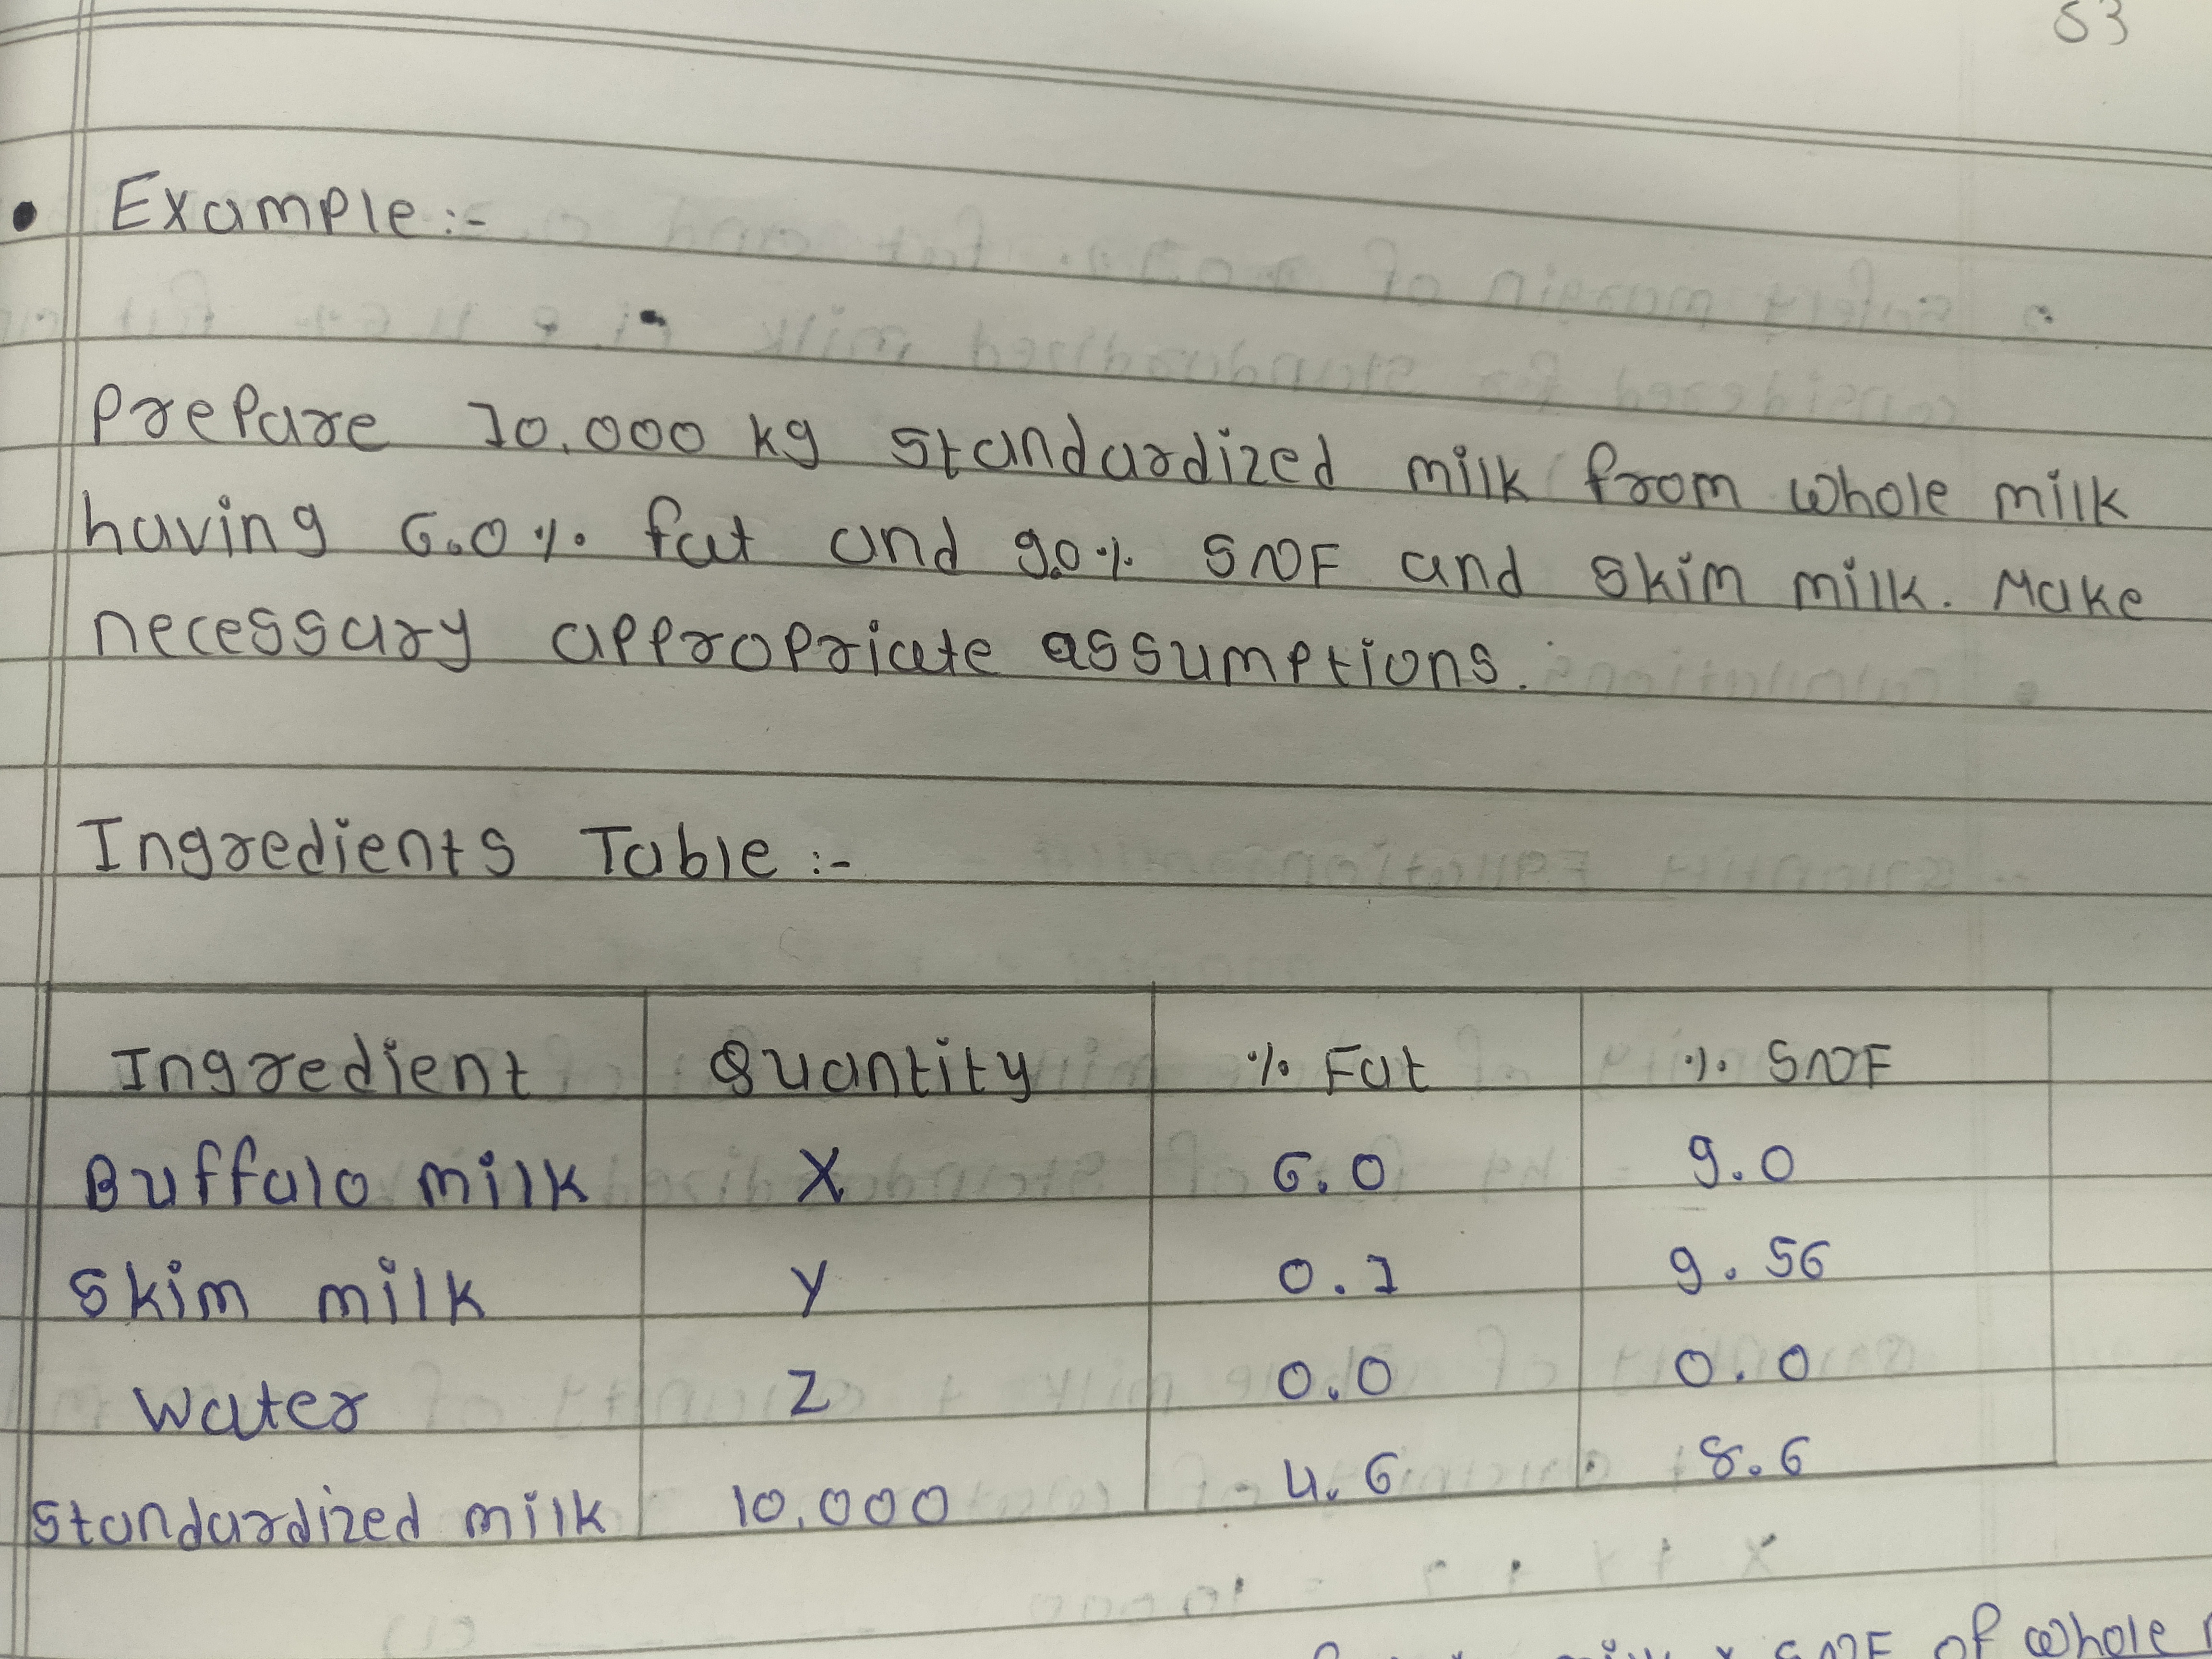 53
• Example:-
Prepare 10,000 kg standardized milk from whole milk
having 6.0% fat and 9.0% SNF and skim milk. Make
necessary appropriate assumptions.
Ingredients Table :-
Ingredient Quantity % Fat % SNF
Buffalo milk X 6.0 9.0
Skim milk Y 0.1 9.56
Water Z 0.0 0.0
Standardized milk 10,000 4.6 8.6
milk x SNF of whole